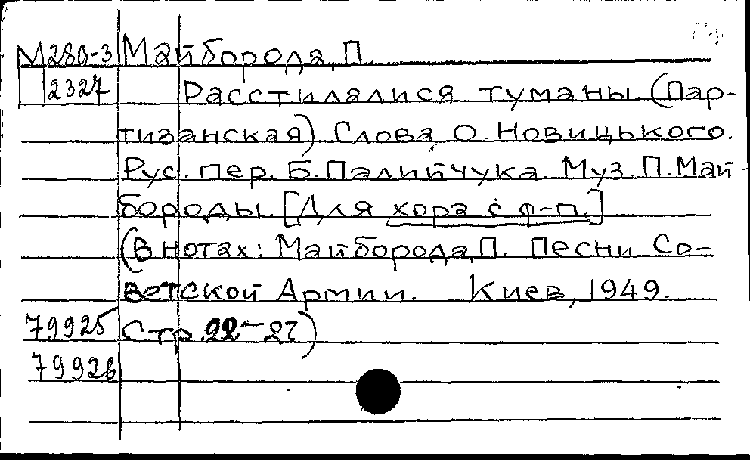 М280-3 Майборода, П.
2327 Расстилалися туманы (Пар-
тизанская) Слова О. Новицького.
Рус. пер. Б. Палийчука. Муз. П. Май-
бороды. [Для хора с ф-п.]
(В нотах: Майборода, П. Песни Со-
ветской Армии. Киев, 1949.
79925 Стр. 22-27)
79926